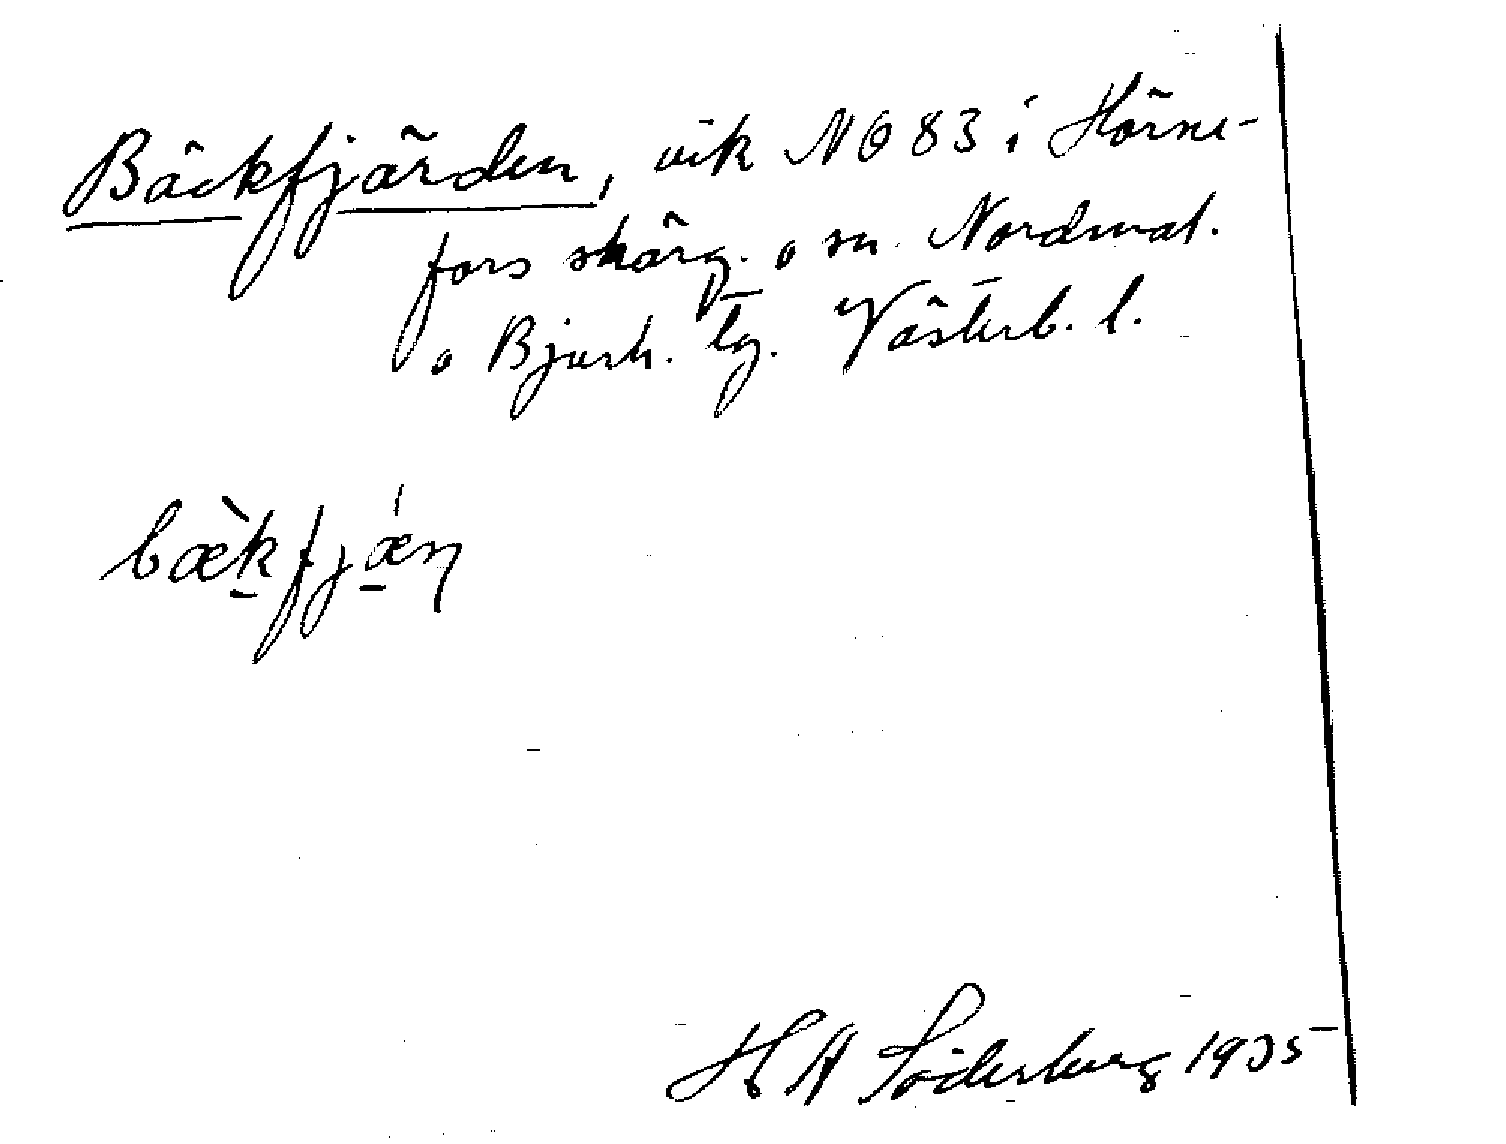 Bäckfjärden, vik NO 83 i Hörne-
fors skärg. o sn. Nordmal.
o Bjurh. tg. Västerb. l.
bæ̀kfjǽṇ
H A Söderberg 1935